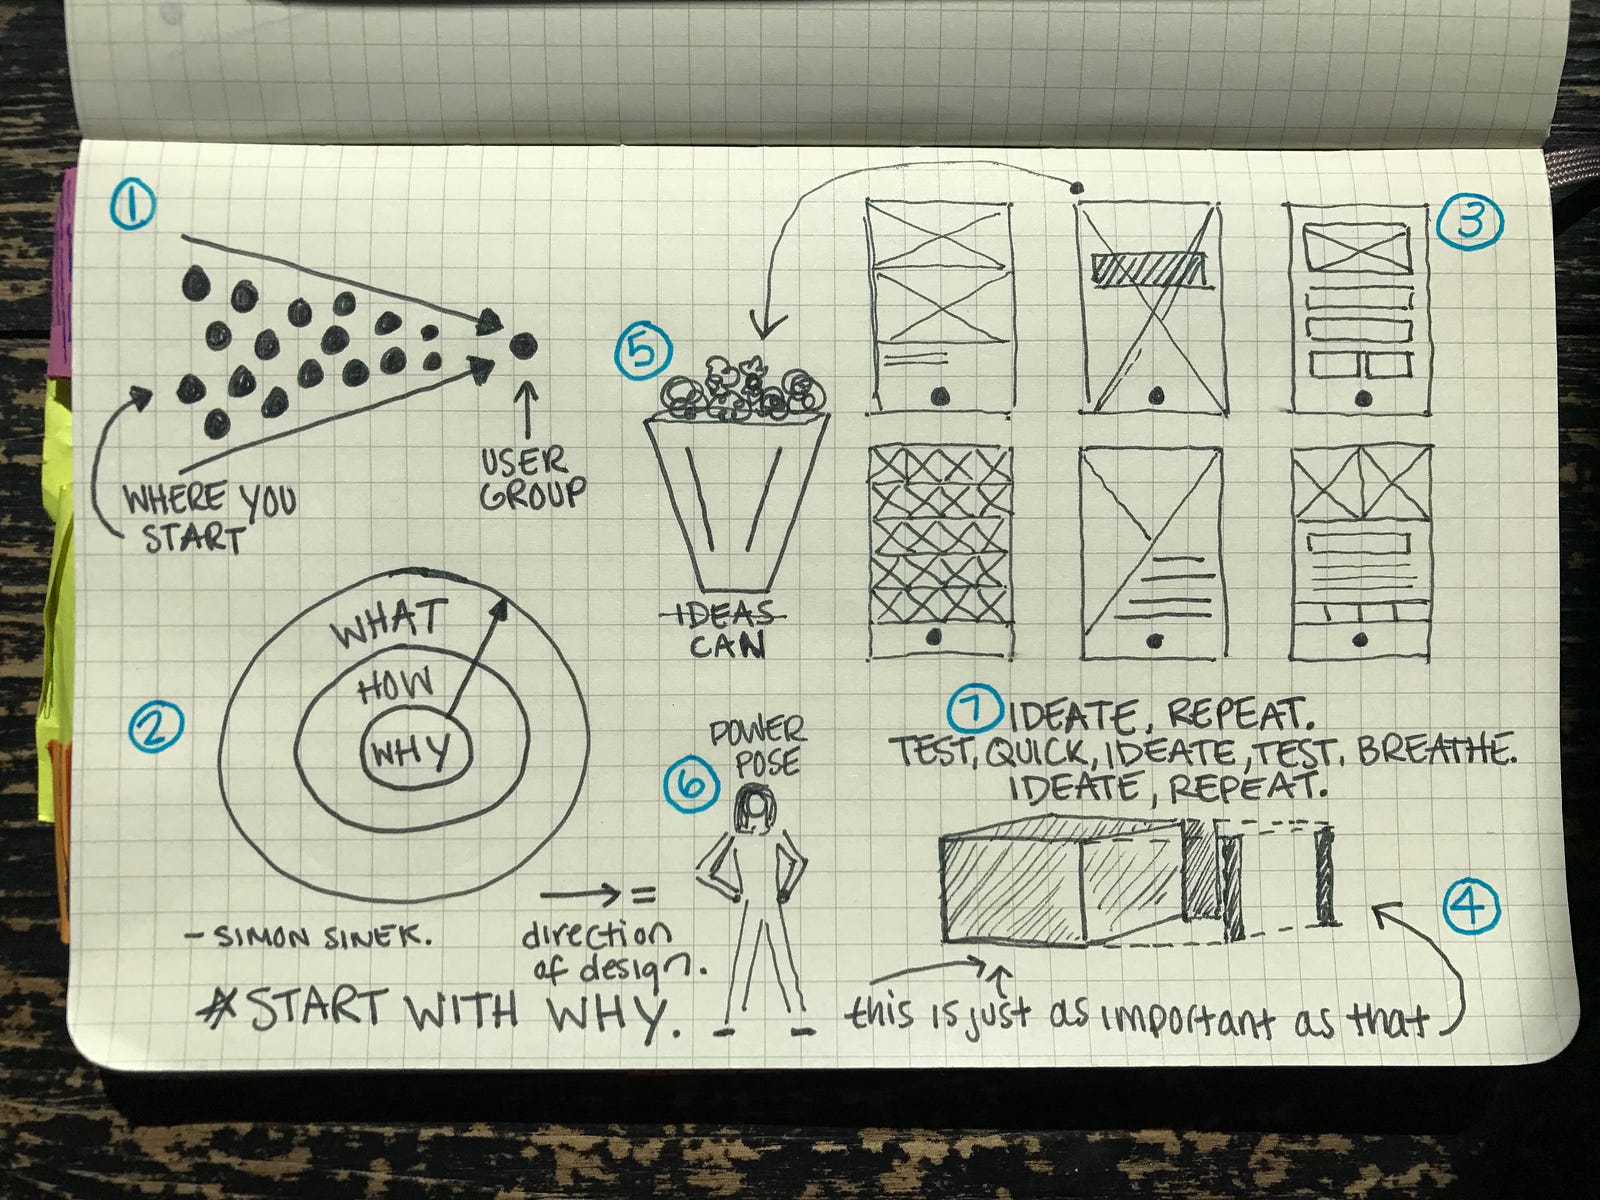 1
WHERE YOU
START
USER
GROUP
2
WHAT
HOW
WHY
- SIMON SINEK.
* START WITH WHY.
=
direction
of design.
3
5
IDEAS
CAN
6
POWER
POSE
7 IDEATE, REPEAT.
TEST, QUICK, IDEATE, TEST. BREATHE.
IDEATE, REPEAT.
4
this is just as important as that